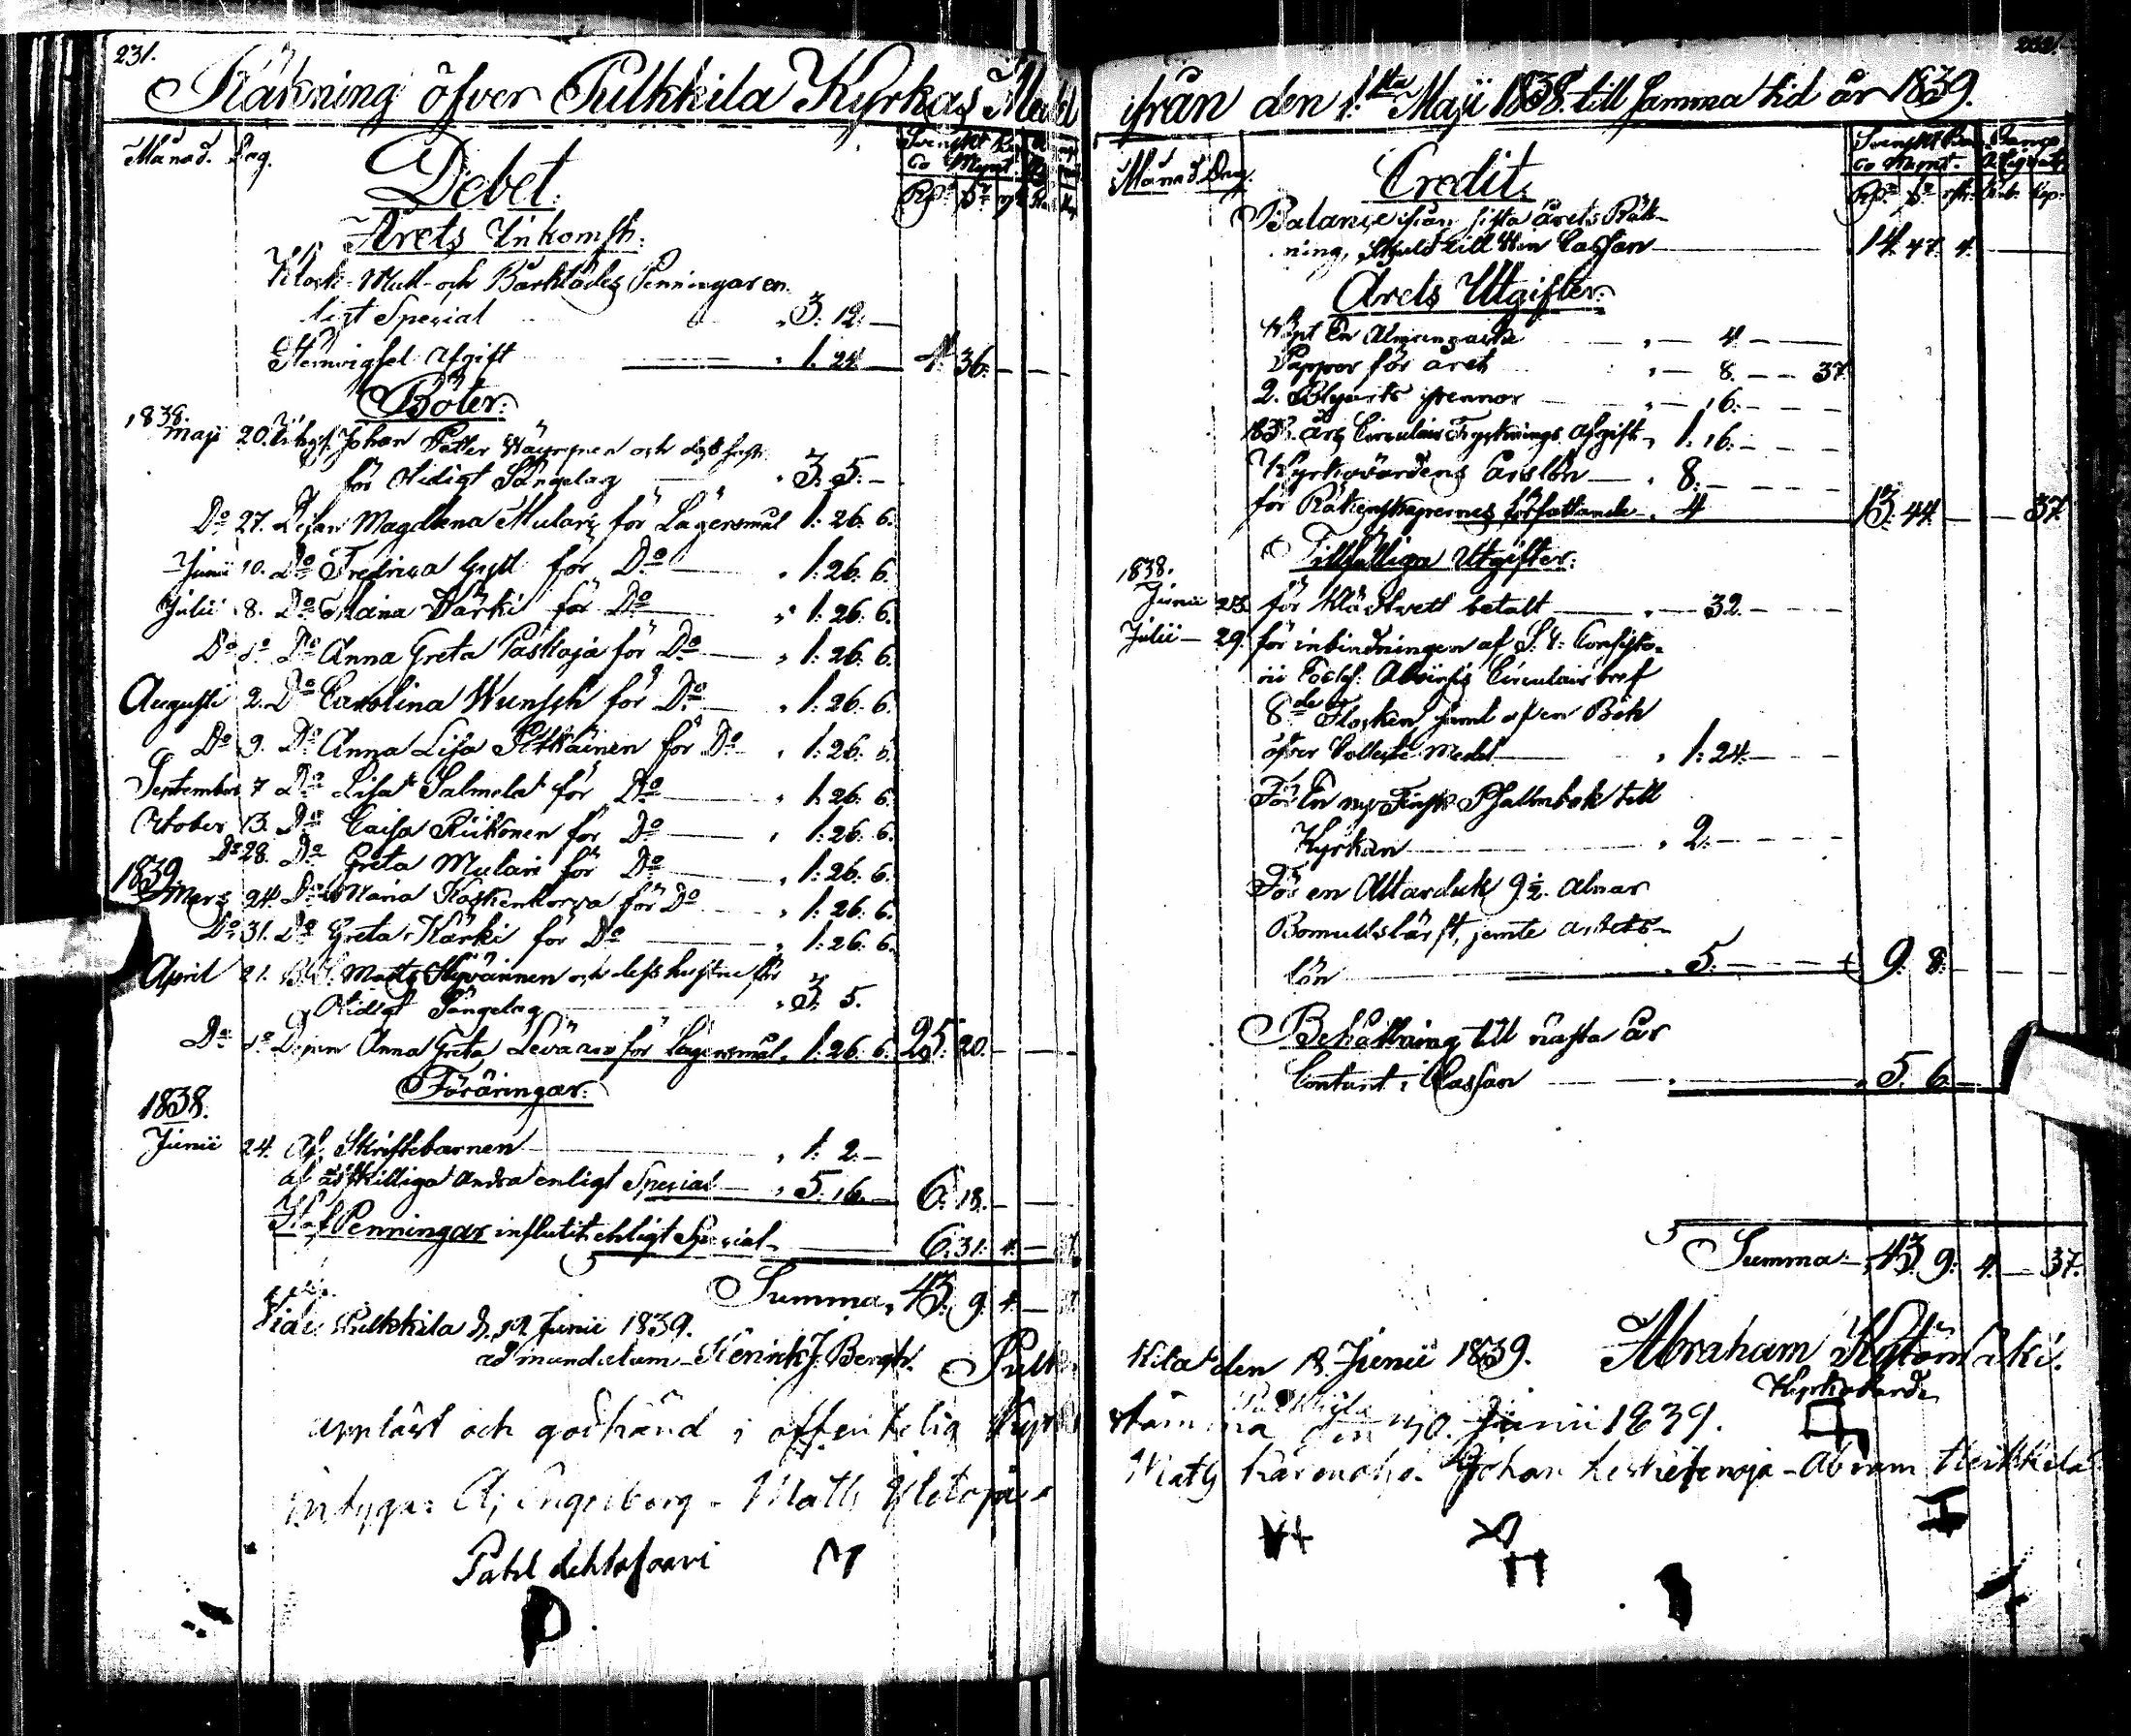 231.
Räkning öfver Pulkkila Kyrkas Medel
Månad. Dag.
Debet.
Årets Inkomst.
Klock- Mull- och Bårklädes Penningar en-
ligt Special 3. 12. —
afgift 1. 24. 4. 36. —
Böter.
1838.
Maji 20. Johan Petter och
för Otidigt Sängelag 3. 5. —
Do 27. Pigan Magdlena Mulari för Lägersmål 1. 26. 6.
Junii 10. Do Fredrica för Do 1. 26. 6.
Julii 8. Do Maina Kärki för Do 1. 26. 6.
Do Do Do Anna Greta för Do 1. 26. 6.
Augusti 2. Do Carolina Wunsch för Do 1. 26. 6.
Do 9. Do Anna Lisa Pitkäinen för Do 1. 26. 6.
September 7 Do Lisa Salmela för Do 1. 26. 6.
October 13. Do Caisa för Do 1. 26. 6.
Do 28. Do Greta Mulari för Do 1. 26. 6.
1839
Mars 24. Do Maria Koskenkorva för Do 1. 26. 6.
Do 31. Do Greta Kärki för Do 1. 26. 6.
April 21. Matts och dess hustru för
Otidigt Sängelag 3. 5.
Do Do Pigan Anna Greta för Lägersmål 1. 26. 6. 25. 20. —
Föräringar.
1838.
Junii 24. Af Skriftebarnen 1. 2. —
af åtskilliga andra enligt Special 5. 16. — 6. 18. —
Håf Penningar influtit enligt Special 6. 31. 4. —
Summa 43. 9. 4. —
Pulkkila d. 12 Junii 1839.
ad mandatum Henrik J. Bergh.
Upläst och godkänd i offentelig Kyrko
intyga: Matts Yletoja
Pahl
ifrån den 1:sta Maji 1838. till samma tid år 1839.
Månad Dag.
Credit.
Balance ifrån sista årets Räk-
ning, Skuld till Cassan 14. 47. 4.
Årets Utgifter.
Köpt En Almanacka — 4 —
Papper för året — 8. — — 37.
2. Blyerts pennor — 16. —
1838. års Circulair Trycknings afgift 1. 16. —
Kyrkovärdens årslön 8. —
för Räkenskapernes författande 4 13. 44. — — 37
Tillfälliga Utgifter.
1838.
Junii 23. för Klädtvätt betalt — 32. —
Julii — 29. för inbindningen af
Circulair bref
8de Flocken samt af en Bok
öfver Collecte Medel 1. 24. —
För En ny Finsk Psalmbok till
Kyrkan 2. —
För en Altarduk 9 1/2. alnar
Bomullslärft, jemte arbets-
lön 5. — 9. 8. —
Behållning till nästa år
Contant i Cassan 5. 6. —
Summa 43. 9. 4. — 37.
Kila den 12. Junii 1839. Abraham
Kyrkovärd
Pulkkila
stämma den 30. Junii 1839.
Matts Johan Abram Heikkilä